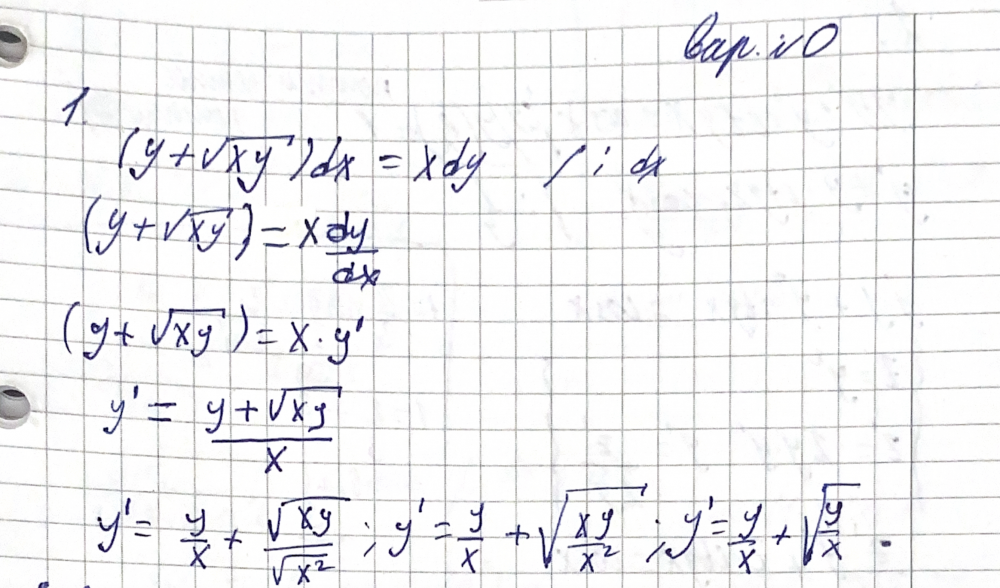 вар. №0
1.
(y + √xy) dx = x dy / : dx
(y + √xy) = x dy/dx
(y + √xy) = x · y'
y' = (y + √xy)/x
y' = y/x + √xy/√x² ; y' = y/x + √(xy/x²) ; y' = y/x + √(y/x) .